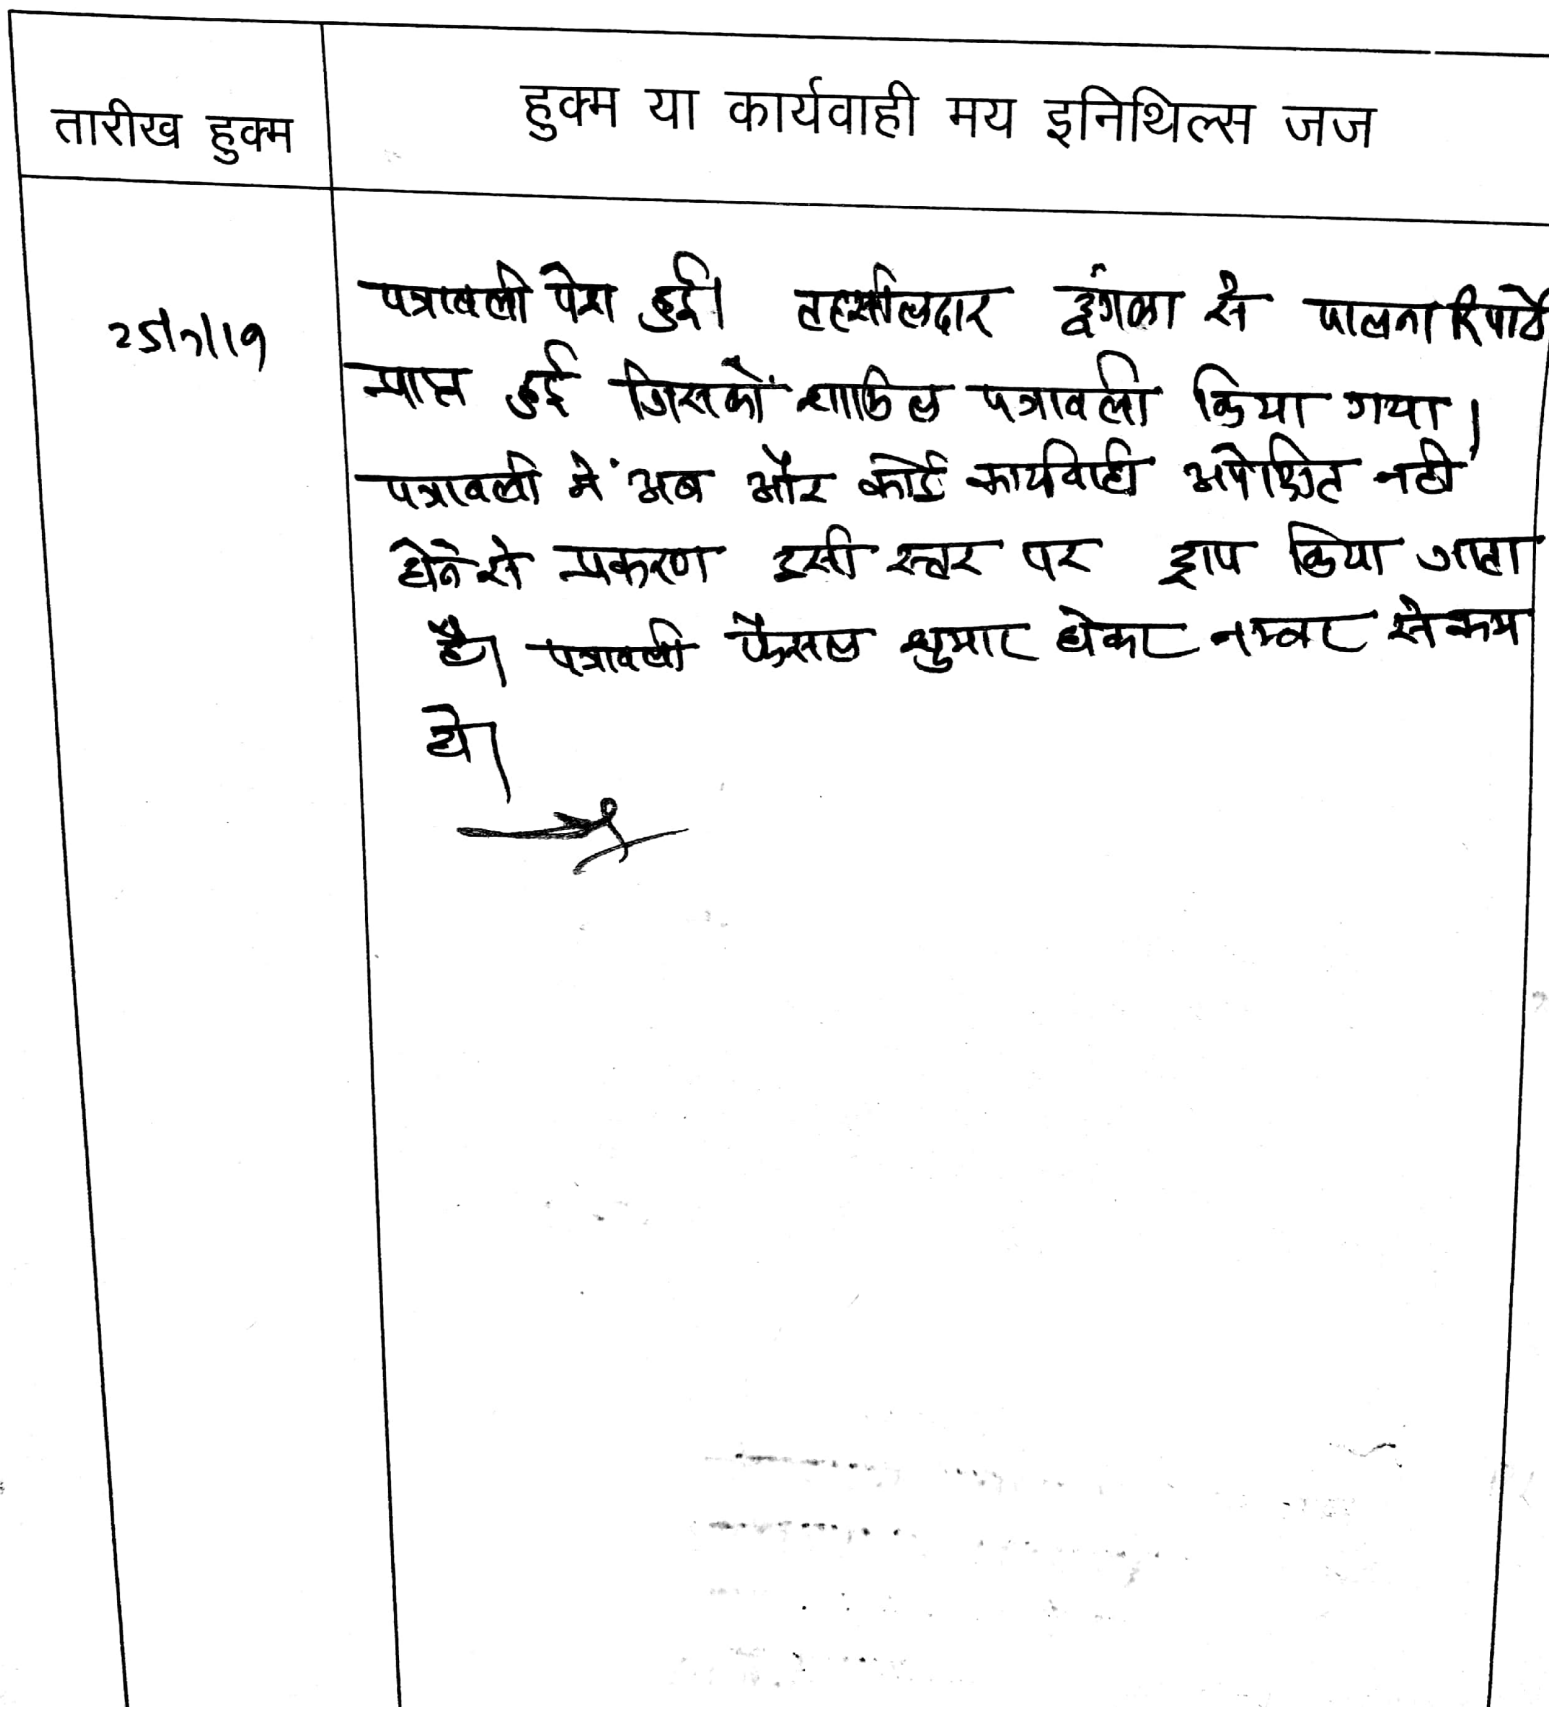 तारीख हुक्म
हुक्म या कार्यवाही मय इनिथिल्स जज
25/7/19
पत्रावली पेश हुई। तहसीलदार डूंगला से पालना रिपोर्ट
प्राप्त हुई जिसको शामिल पत्रावली किया गया।
पत्रावली में अब और कोई कार्यवाही अपेक्षित नही
होने से प्रकरण इसी स्तर पर ड्राप किया जाता
है। पत्रावली फैसल शुमार होकर नम्बर से कम
हो।